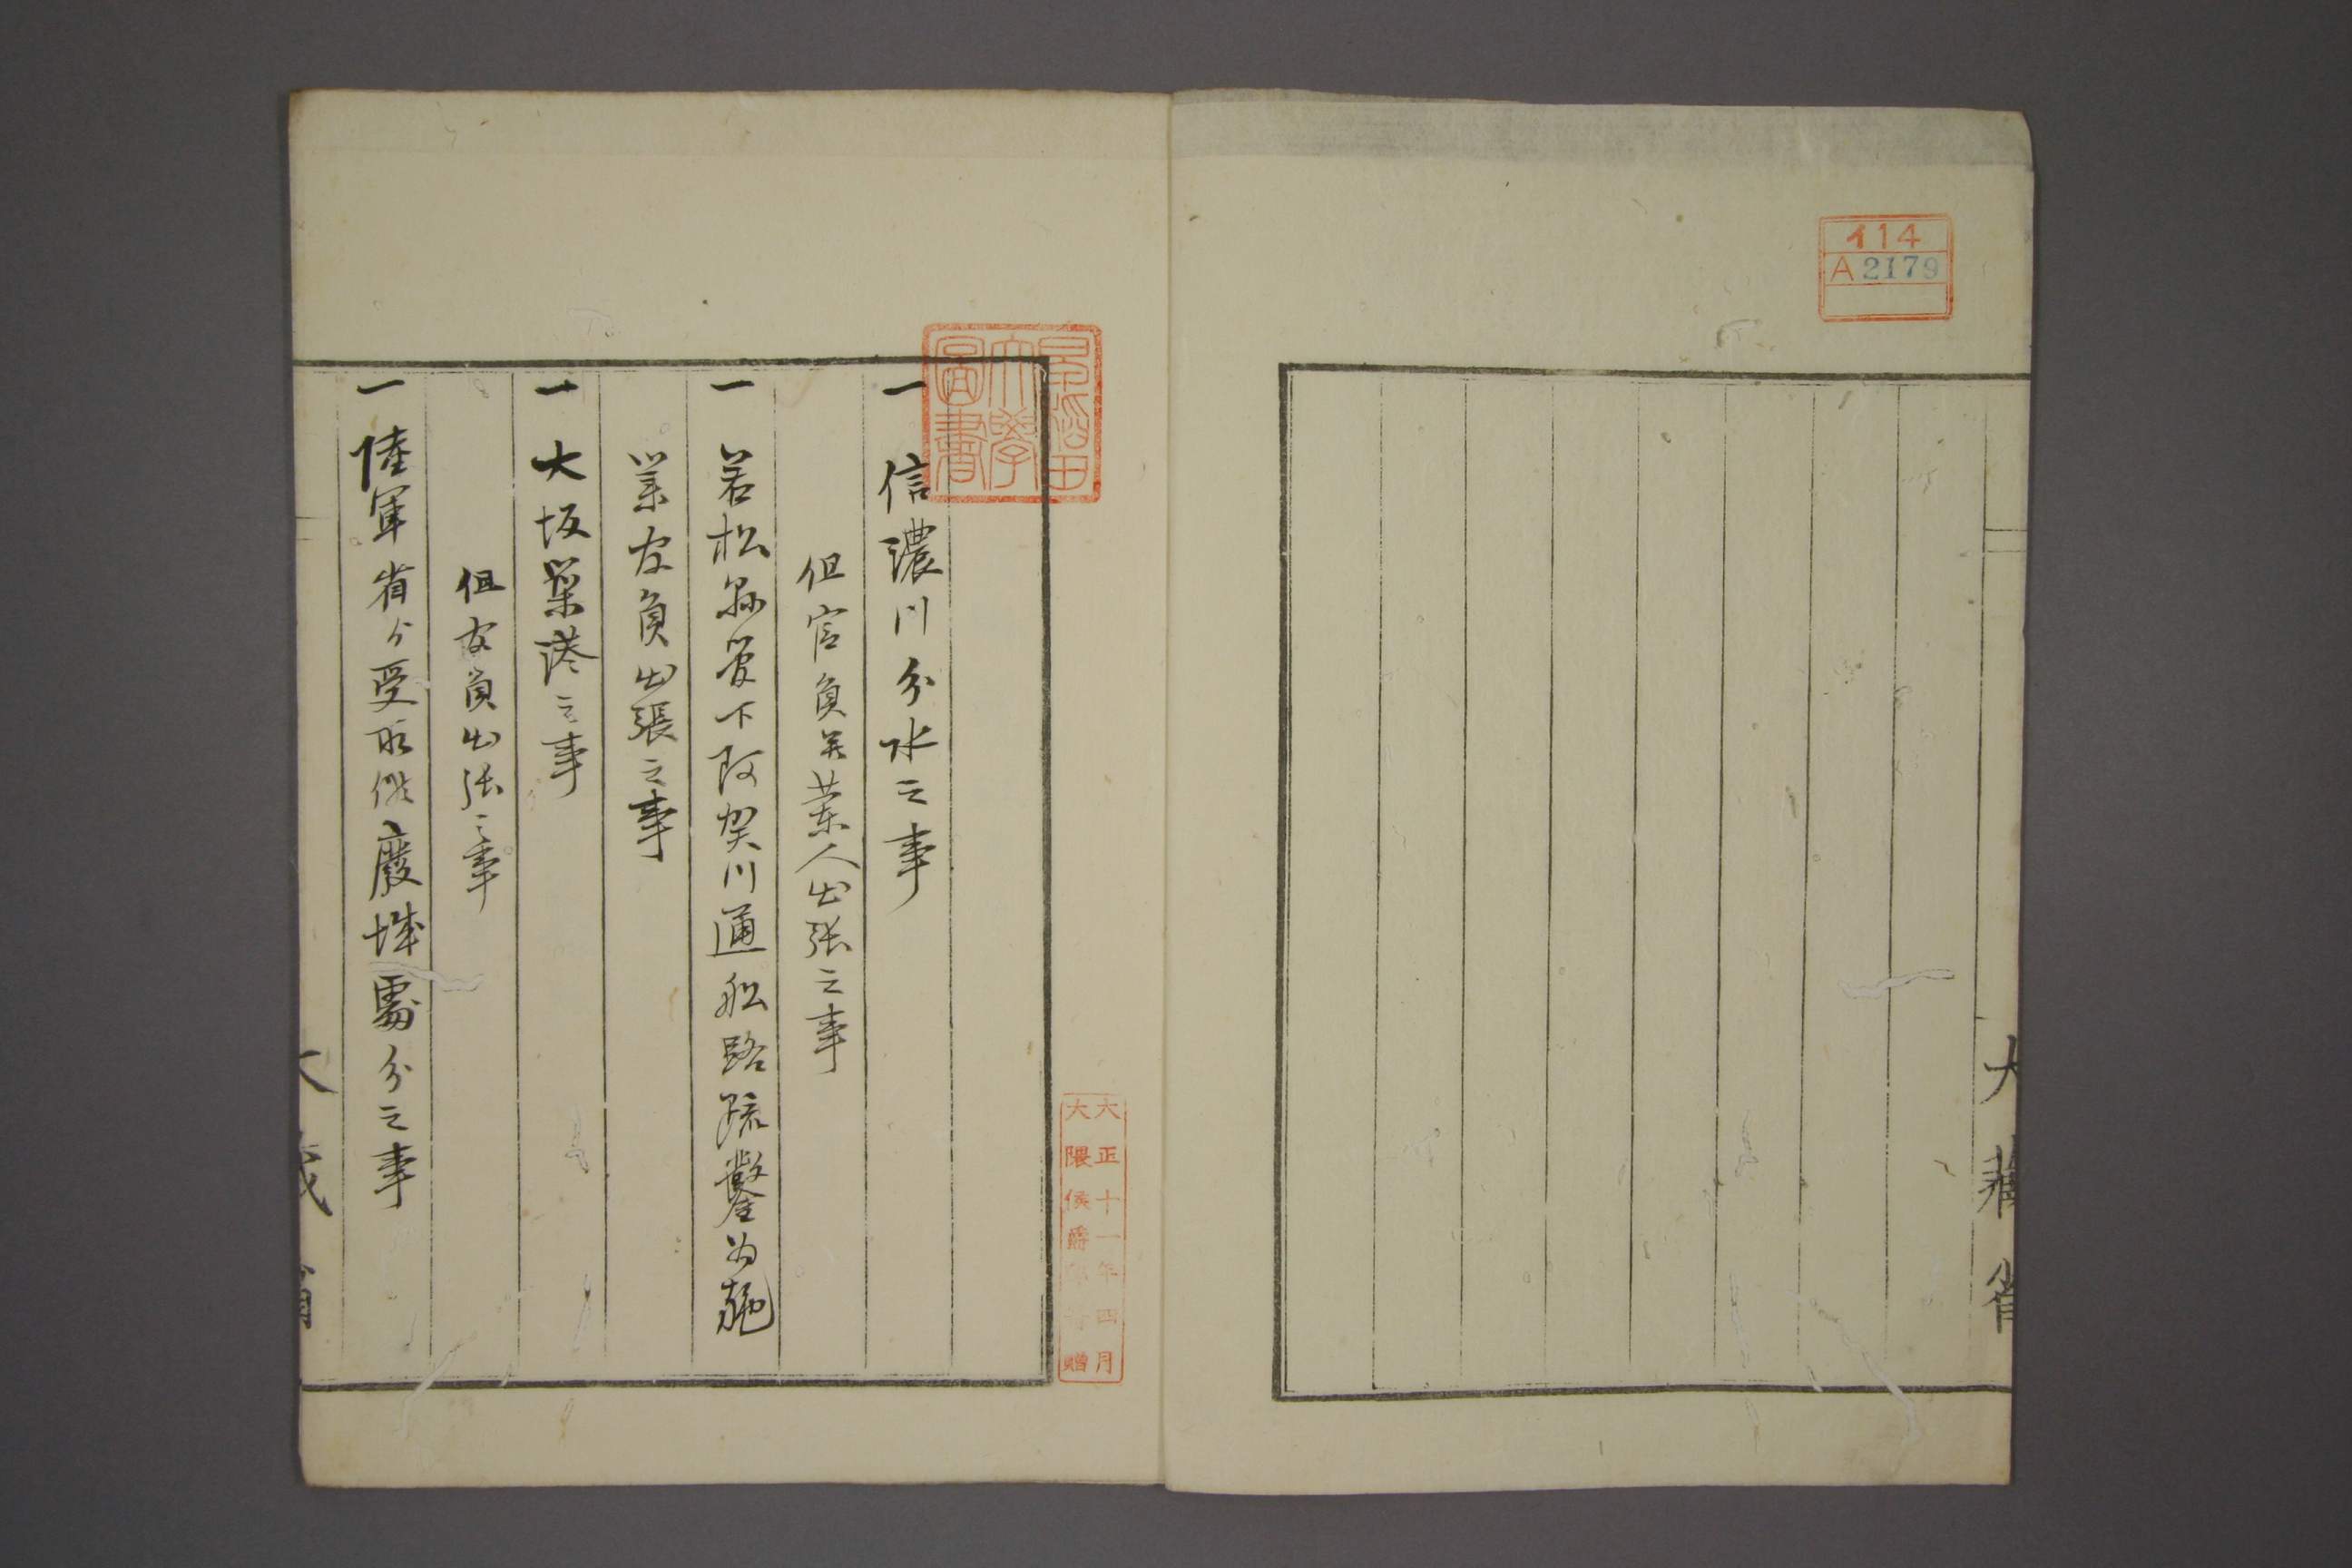 イ14
A2179
大藏省
早稲田大學圖書
大正十一年四月
大隈侯爵寄贈
一 信濃川分水之事
但官員并蘭人出張之事
一 若松縣管下阿賀川通船路疏鑿為施
業官員出張之事
一 大坂築港之事
但官員出張之事
一 陸軍省ゟ受取候廢城處分之事
大藏省